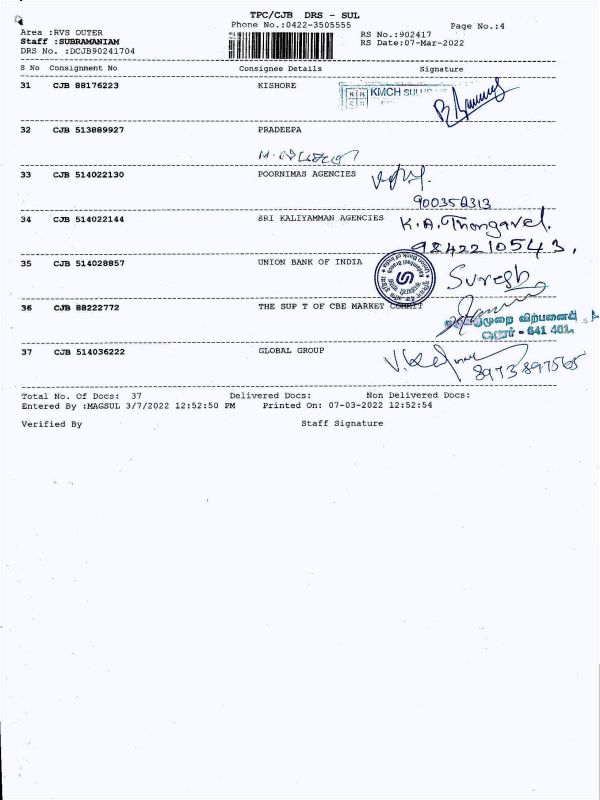 TPC/CJB DRS - SUL
Phone No.:0422-3505555
Page No.:4
Area :RVS OUTER
RS No.:902417
Staff :SUBRAMANIAM
RS Date:07-Mar-2022
DRS No. :DCJB90241704
S No Consignment No Consignee Details Signature
31 CJB 88176223 KISHORE
KMCH SULUR
32 CJB 513889927 PRADEEPA
33 CJB 514022130 POORNIMAS AGENCIES
34 CJB 514022144 SRI KALIYAMMAN AGENCIES K.A.Thangavel.
9842210543,
35 CJB 514028857 UNION BANK OF INDIA Suresh
36 CJB 88222772 THE SUP T OF CBE MARKET COMMIT
விற்பனைக்
சூலூர் - 641 401.
37 CJB 514036222 GLOBAL GROUP
8973897565
Total No. Of Docs: 37 Delivered Docs: Non Delivered Docs:
Entered By :MAGSUL 3/7/2022 12:52:50 PM Printed On: 07-03-2022 12:52:54
Verified By Staff Signature